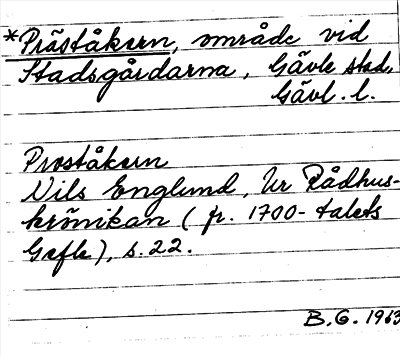 *Präståkern, område vid
Stadsgårdarna, Gävle stad,
Gävl. l.
Proståkern
Nils Englund, Ur Rådhus-
krönikan (fr. 1700-talets
Gefle), s. 22.
B.G. 1963